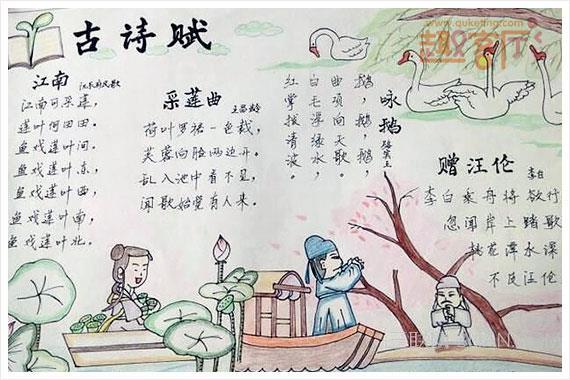 www.quketing.com
趣客厅
古诗赋
江南
江南可采莲，
莲叶何田田。
鱼戏莲叶间。
鱼戏莲叶东，
鱼戏莲叶西，
鱼戏莲叶南，
鱼戏莲叶北。
采莲曲
王昌龄
荷叶罗裙一色裁，
芙蓉向脸两边开。
乱入池中看不见，
闻歌始觉有人来。
咏鹅
骆宾王
鹅，鹅，鹅，
曲项向天歌。
白毛浮绿水，
红掌拨清波。
赠汪伦
李白
李白乘舟将欲行
忽闻岸上踏歌
桃花潭水深
不及汪伦